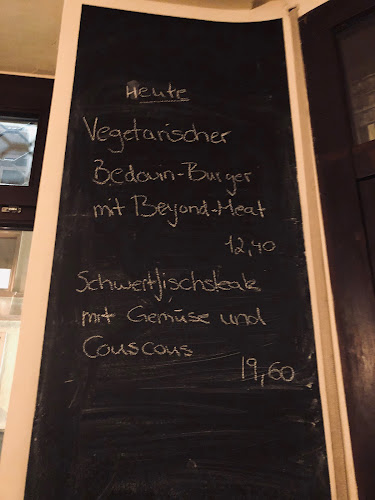 Heute
Vegetarischer
Bedouin-Burger
mit Beyond-Meat
12,40
Schwertfischsteak
mit Gemüse und
Couscous
19,60